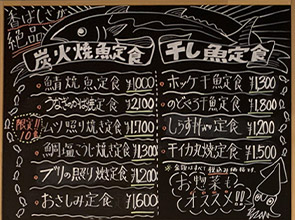 香ばしさが
絶品
炭火焼魚定食
干し魚定食
鯖焼魚定食 ¥1000
うなぎかば焼定食 ¥2100
限定!!
10食
ムツ照り焼き定食 ¥1700
鯛塩こうじ焼定食 ¥1300
ブリの照り焼定食 ¥1200
おさしみ定食 ¥1600
ホッケ干魚定食 ¥1300
のどぐろ干魚定食 ¥1800
しらす丼定食 ¥1200
干イカ丸焼定食 ¥1500
お惣菜も
オススメ!!